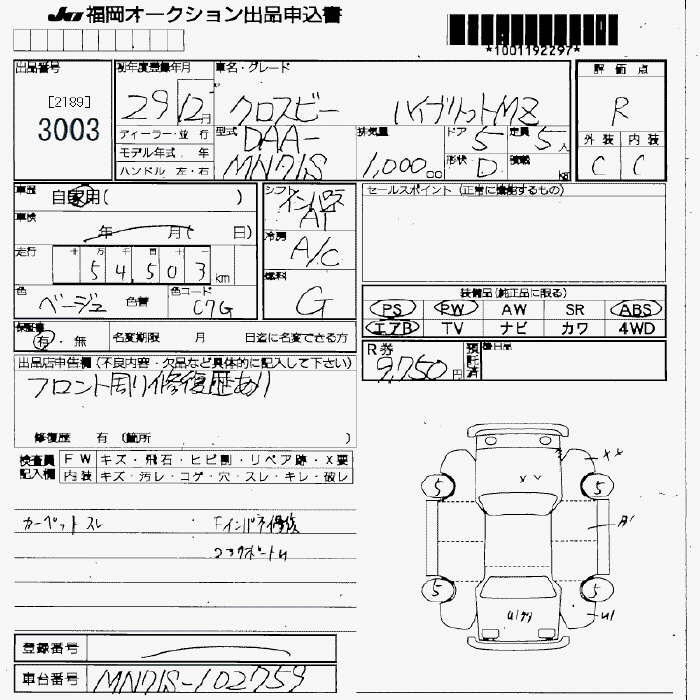 JU 福岡オークション出品申込書
*1001192297*
出品番号
[2189]
3003
初年度登録年月
29 12月
車名・グレード
クロスビー ハイブリットMZ
ディーラー・並行
モデル年式 年
ハンドル 左・右
型式
DAA-
MN71S
排気量
1,000cc
ドア 5
定員 5人
形状 D
積載 kg
評価点
R
外装 内装
C C
車歴 自家用( )
車検 年 月( 日)
走行 54,503km
色 ベージュ 色替
色コード C7G
シフト インパネAT
冷房 A/C
燃料 G
セールスポイント (正常に機能するもの)
装備品(純正品に限る)
PS PW AW SR ABS
エアB TV ナビ カワ 4WD
保証書 有・無 名変期限 月 日迄に名変できる方
R券 9,750円
預託済
後日品
出品店申告欄(不良内容・欠品など具体的に記入して下さい)
フロント周り修復歴あり
修復歴 有 (箇所 )
検査員記入欄
FW キズ・飛石・ヒビ割・リペア跡・X要
内装 キズ・汚レ・コゲ・穴・スレ・キレ・破レ
カーペットスレ
Fインパネ修復
コアサポートU
5 5
5 5
XX
XV
A1
U1
登録番号
車台番号 MN71S-102759